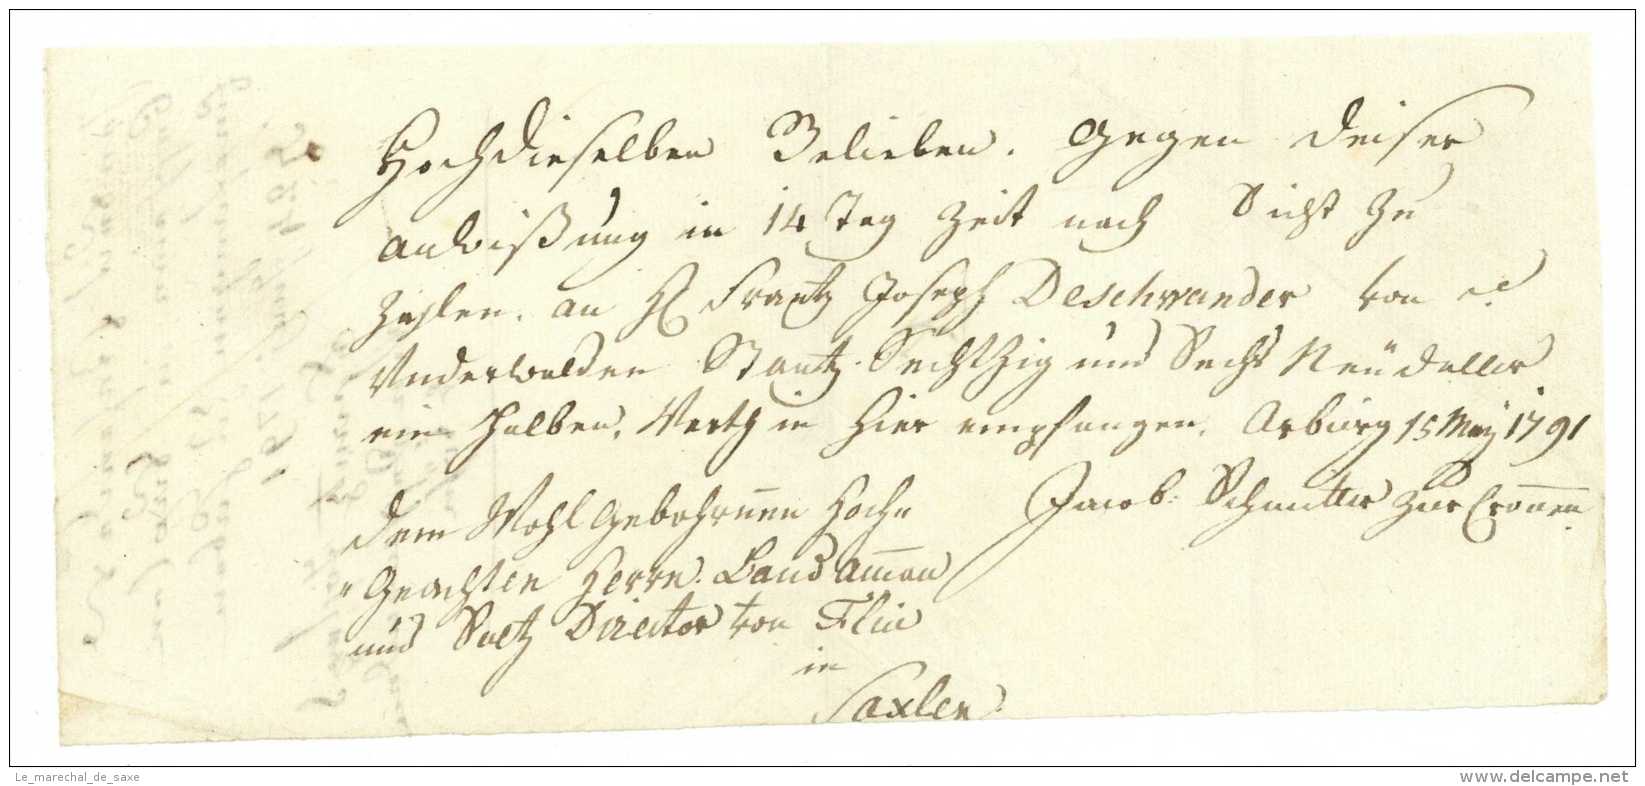 Hochdieselben Belieben. Gegen deiser
anwißung in 14 Tag Zeit nach Sicht Zu
Zahlen. an H Frantz Joseph Deschwander von
Underwalden Stantz. Sechtzig und Sechs Neüdaller
ein halben, Werth in hier empfangen. Arburg 15 Maÿ 1791
Jacob Schmitter Zur Cronnen
dem Wohl Gebohrnnen Hoch
Geachsten Herrn. Land Amman
und Saltz Director von Flüe
in
Saxlen
Le_marechal_de_saxe
www.delcampe.net